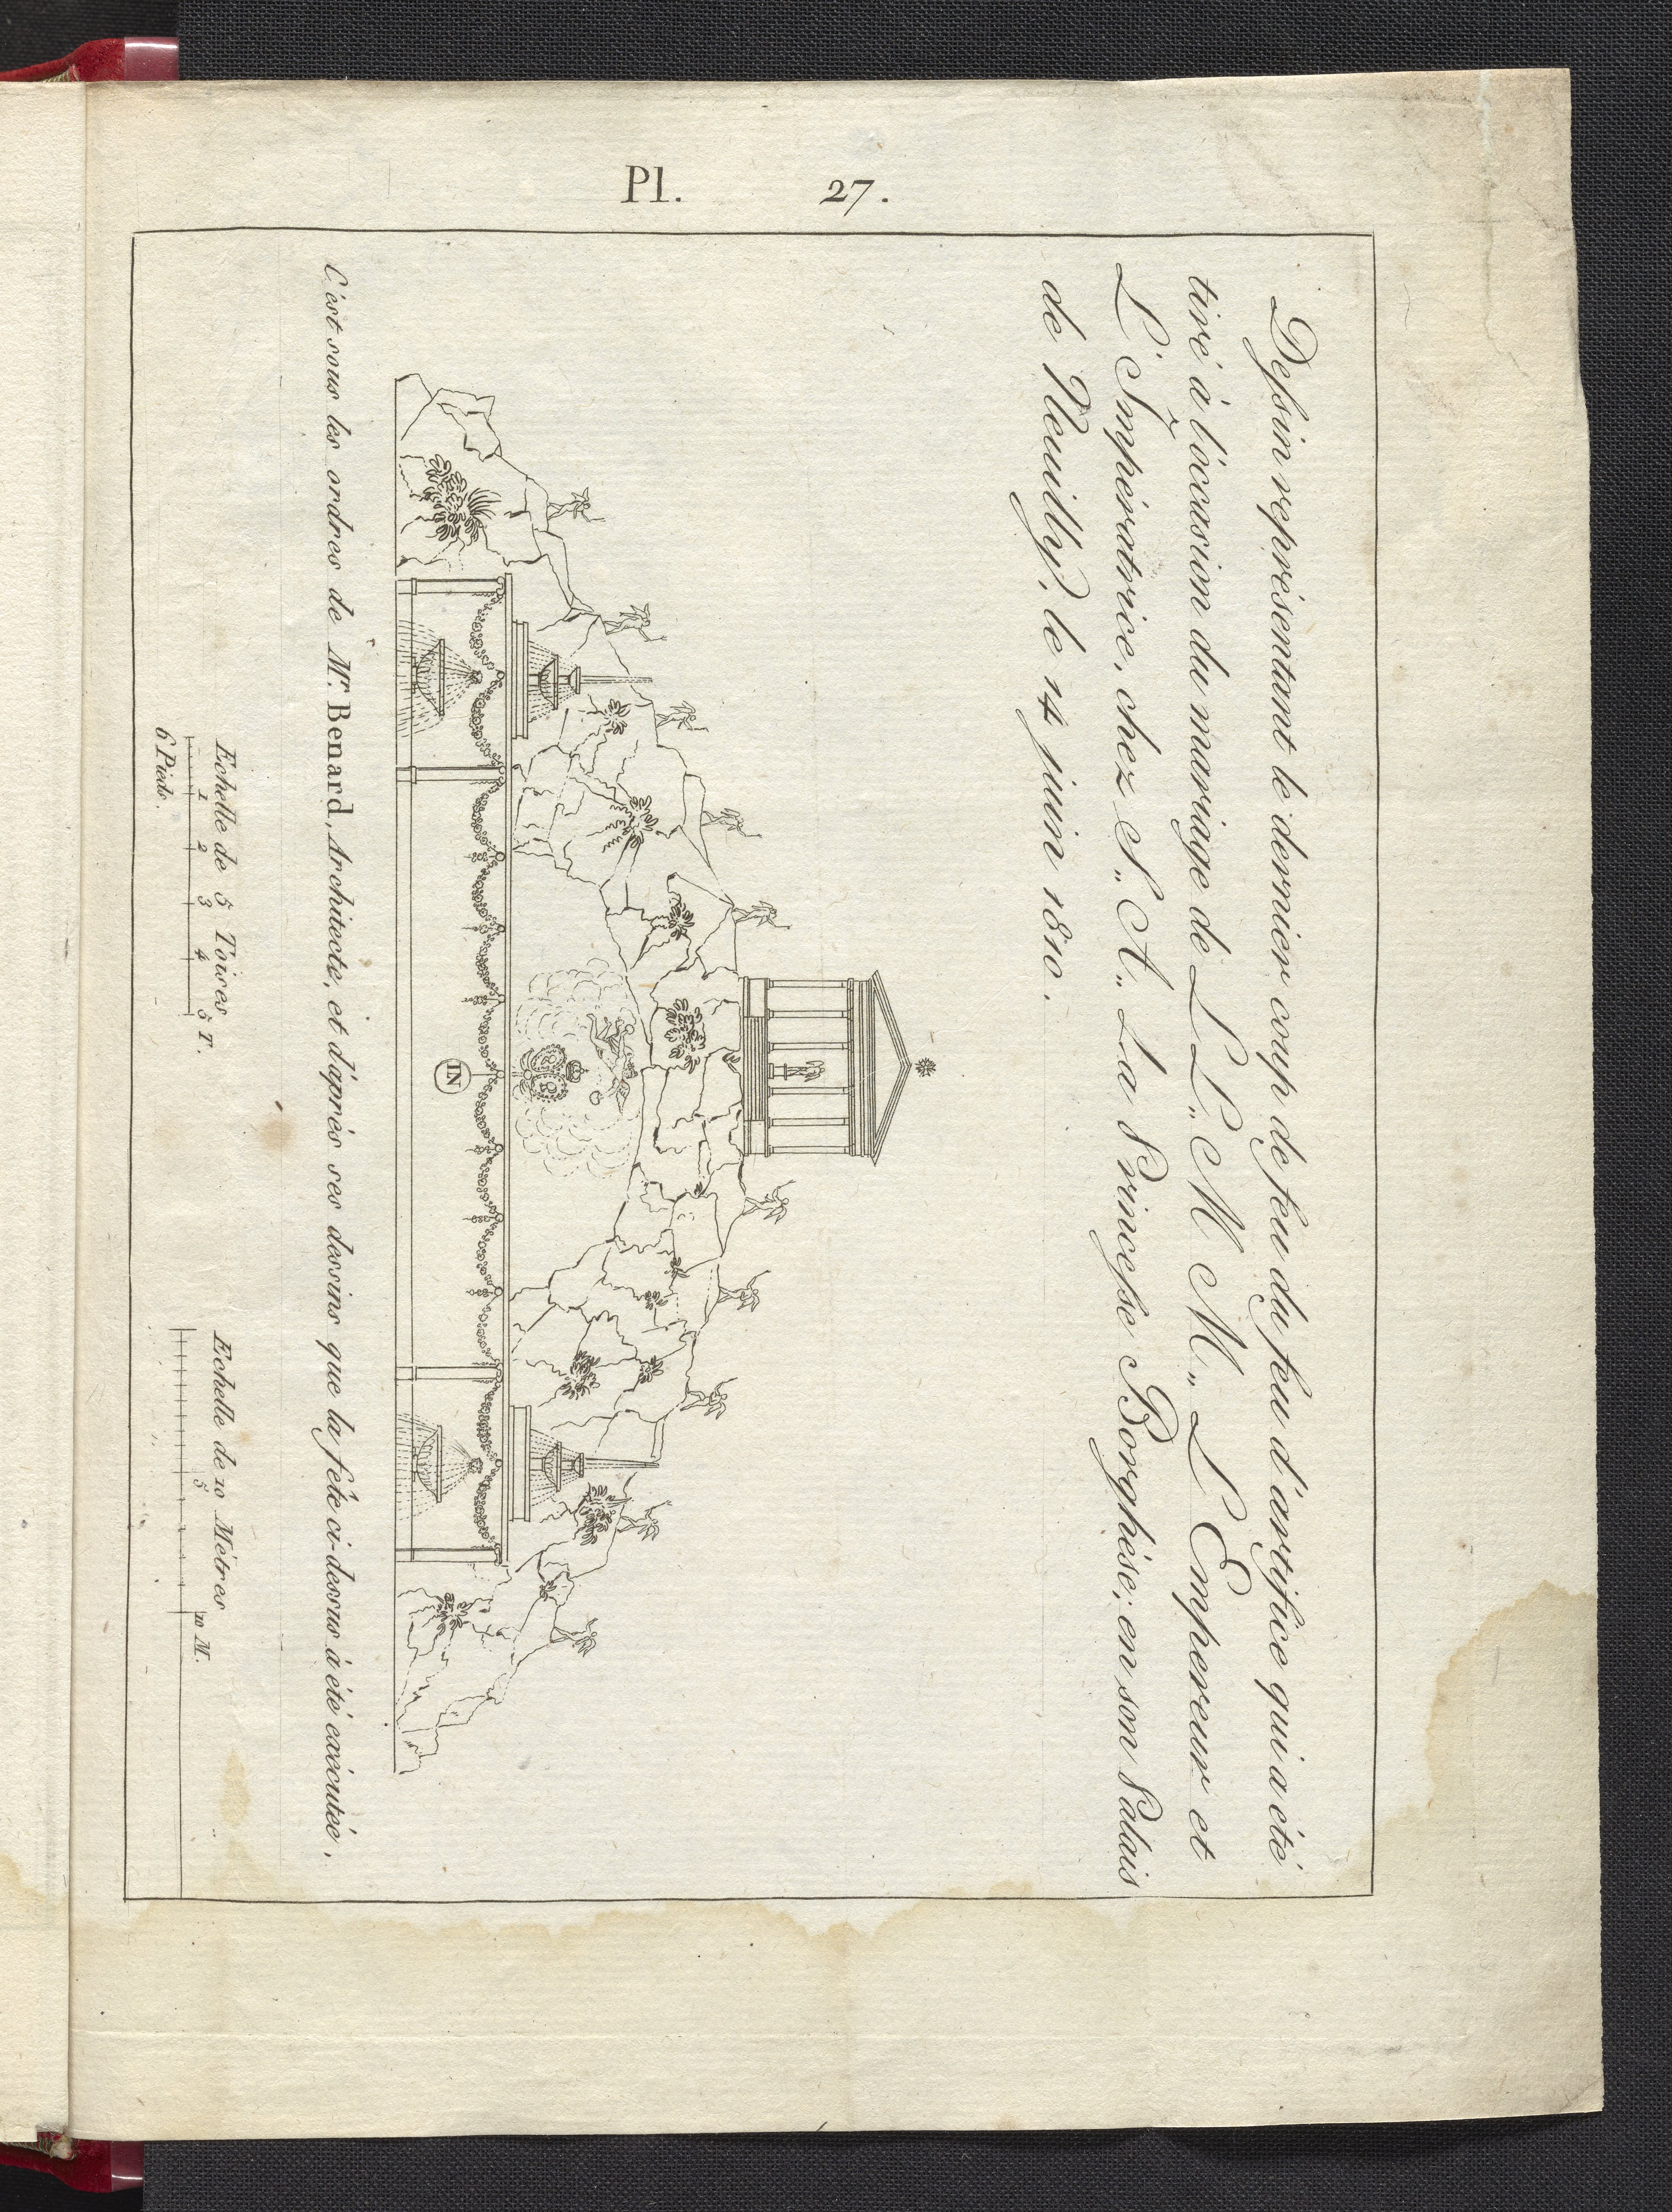 Pl. 27.
Dessin représentant le dernier coup de feu du feu d'artifice qui a été
tiré à l'occasion du mariage de LL.,, M M.,, L'Empereur et
L'Impératrice, chez S.,, A.,, La Princesse Borghése; en son Palais
de Neuilly, le 14 juin 1810.
IN
C'est sous les ordres de Mr. Benard, Architecte, et d'aprés ses dessins que la fête ci-dessus à été exécutée.
Echelle de 5 Toises
1 2 3 4 5 T.
6 Pieds.
Echelle de 10 Métres
5 10 M.